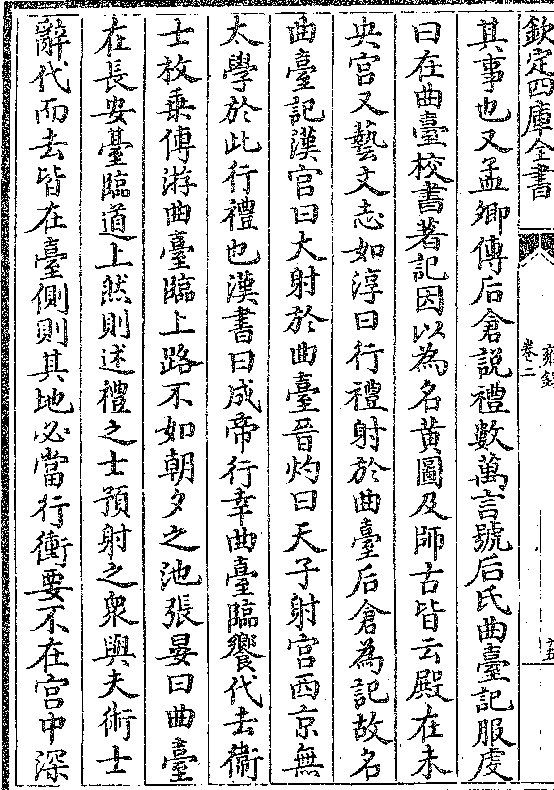 欽定四庫全書
雍錄
卷二
其事也又孟卿傳后倉說禮數萬言號后氏曲臺記服虔
曰在曲臺校書著記因以為名黄圖及師古皆云殿在未
央宫又藝文志如淳曰行禮射於曲臺后倉為記故名
曲臺記漢官曰大射於曲臺晉灼曰天子射宫西京無
太學於此行禮也漢書曰成帝行幸曲臺臨饗代去衛
士枚乗傳游曲臺臨上路不如朝夕之池張晏曰曲臺
在長安臺臨道上然則述禮之士預射之衆與夫術士
辭代而去皆在臺側則其地必當行衝要不在宫中深